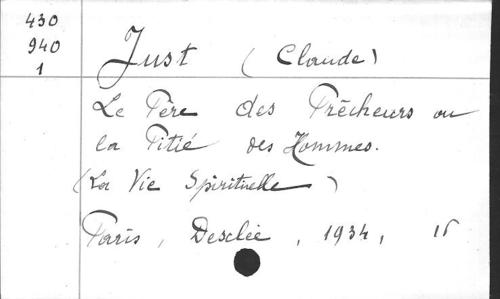 430
940
1
Just (Claude)
Le Père des Prêcheurs ou
la Pitié des Hommes.
(La Vie Spirituelle)
Paris, Desclée, 1934,